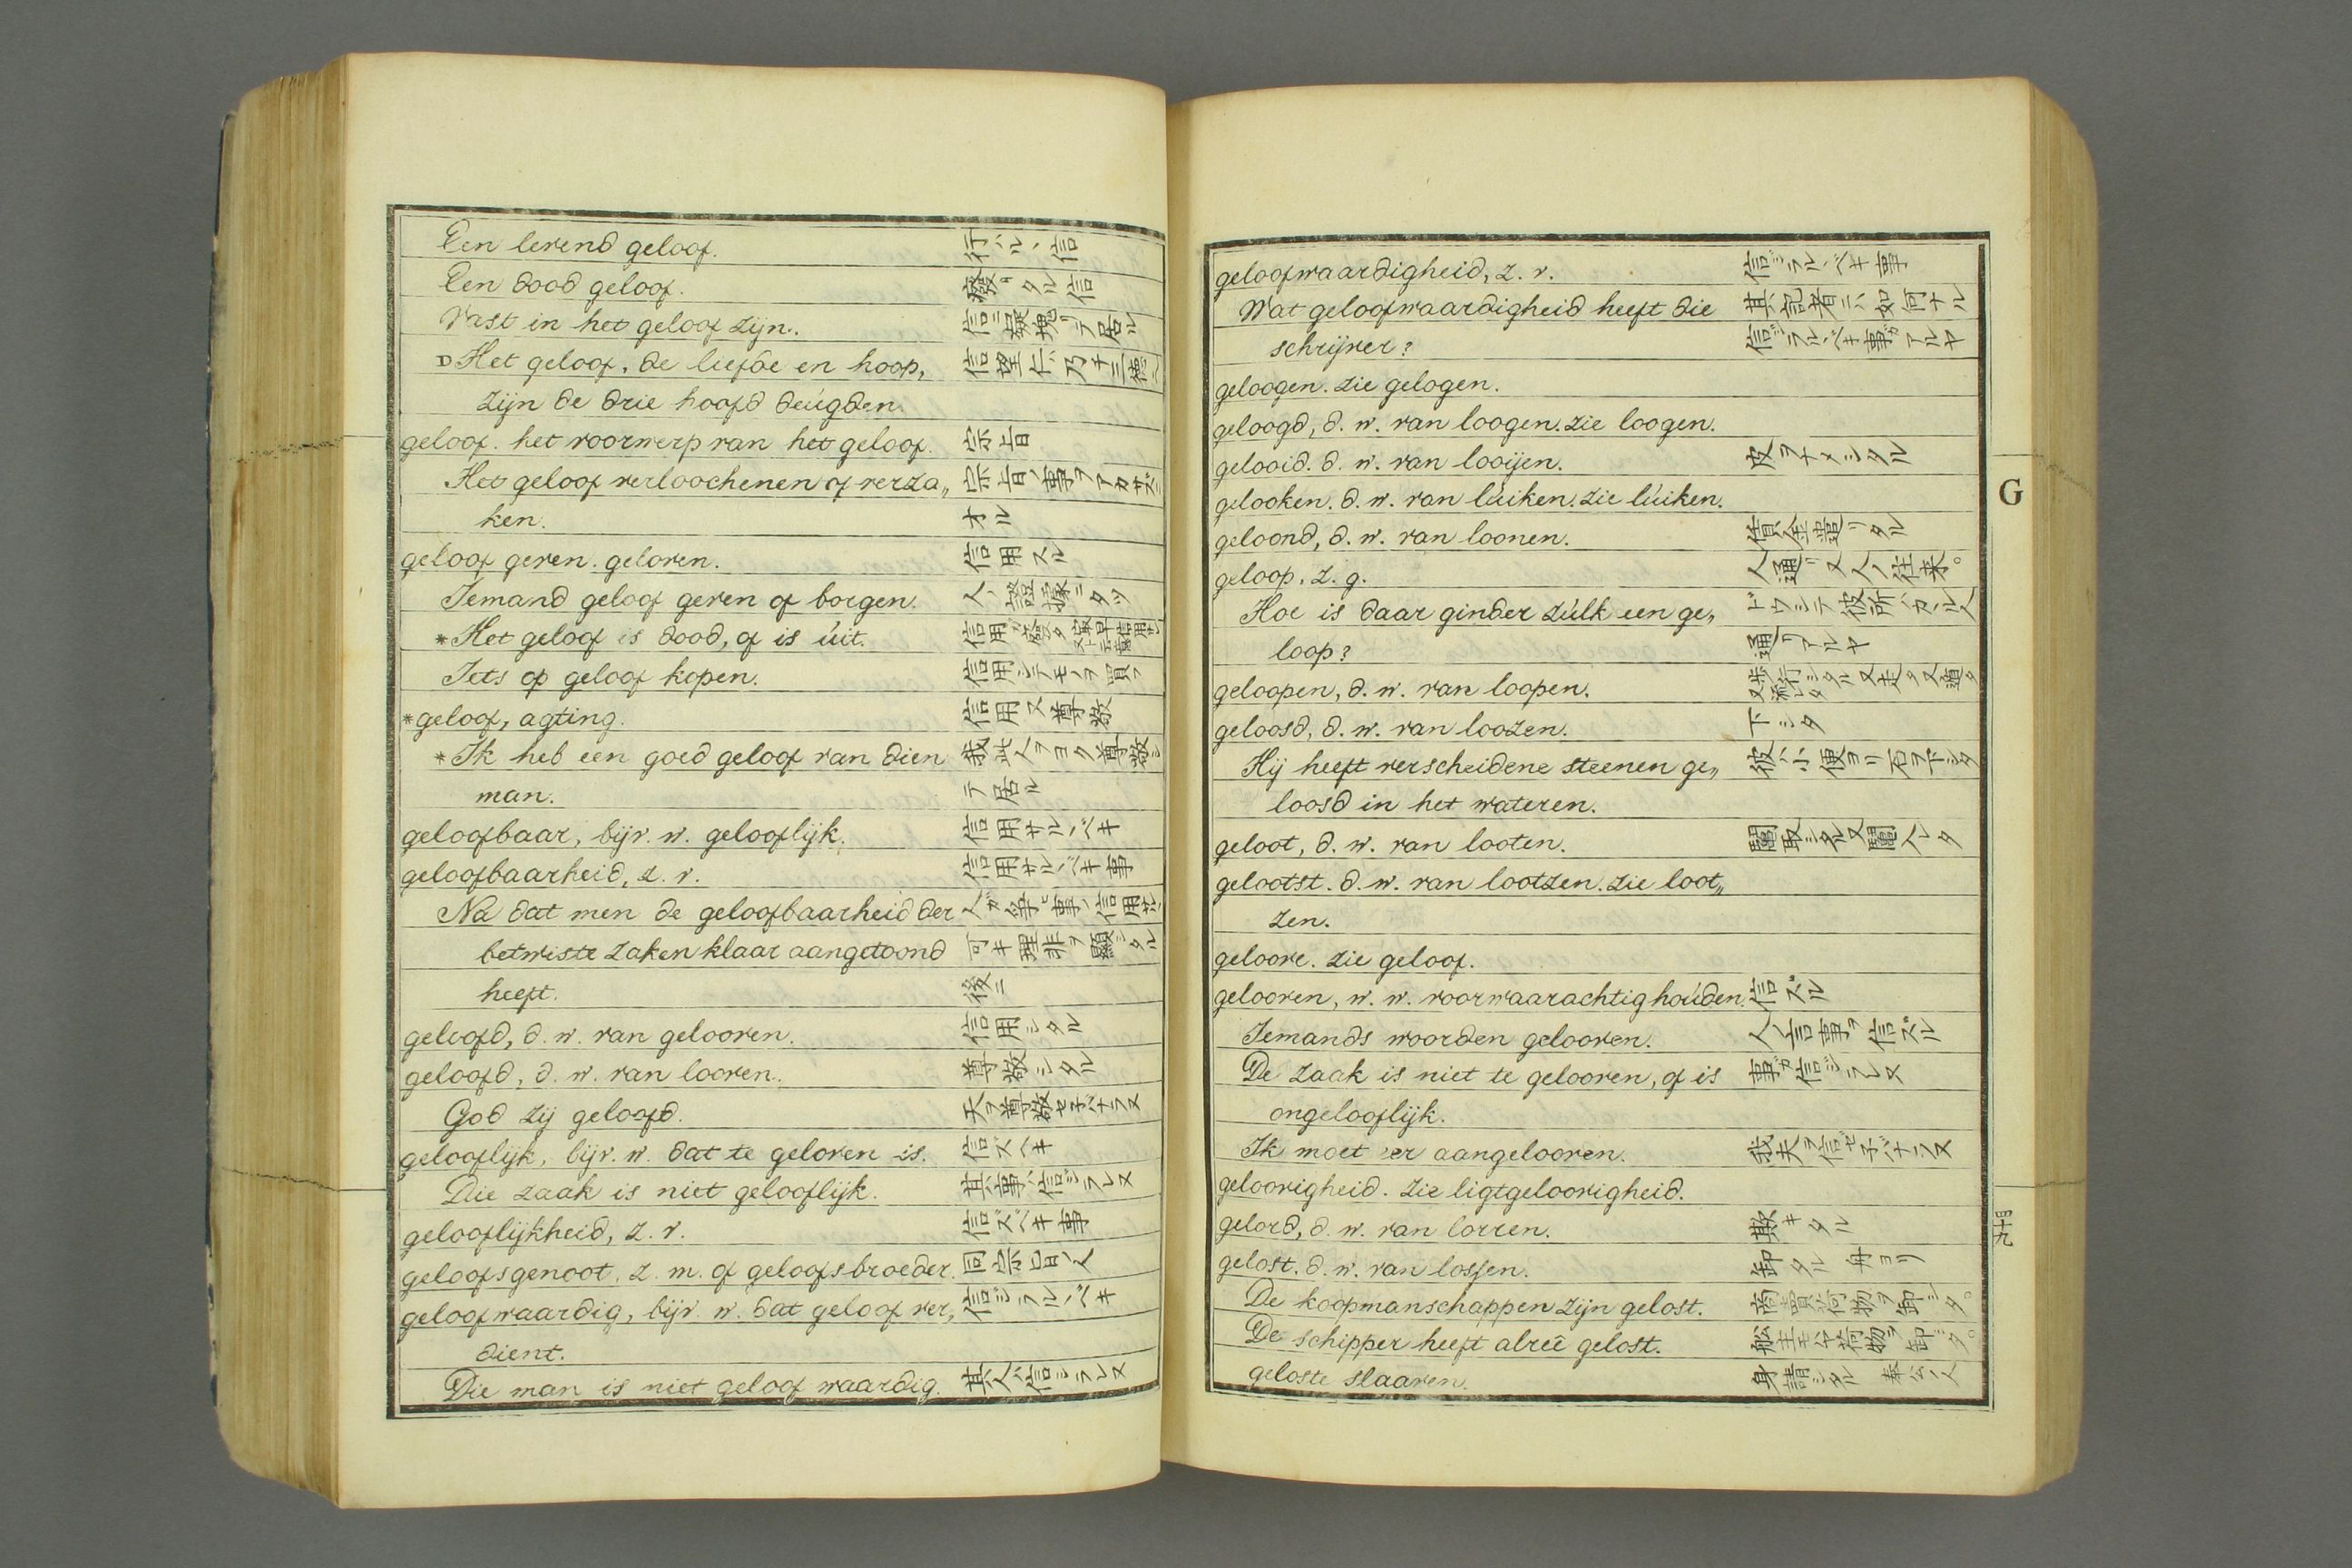 Een levend geloof. 行ハルヽ信
Een dood geloof. 癈リタル信
Vast in het geloof zijn. 信ニ凝塊リテ居ル
Het geloof, de liefde en hoop,
zijn de drie hoofd deúgden.
geloof. het voorwerp van het geloof. 宗旨
Het geloof verloochenen of verza„
ken.
geloof geven. geloven. 信用スル
Iemand geloof geven of borgen. 人ノ證據ニタツ
*Het geloof is dood, of is úit.
Iets op geloof kopen. 信用シテモノヲ買フ
*geloof, agting. 信用又尊敬
*Ik heb een goed geloof van dien 我此人ヲヨク尊敬シ
man. テ居ル
geloofbaar, bijv. w. gelooflijk. 信用サルベキ
geloofbaarheid, z. v. 信用サルベキ事
Na dat men de geloofbaarheid der
betwiste zaken klaar aangetoond 可キ理非ヲ顯シタル
heeft. 後ニ
geloofd, d. w. van gelooven. 信用シタル
geloofd, d. w. van looven. 尊敬シタル
God zij geloofd. 天ヲ尊敬セ子バナラヌ
gelooflijk, bijv. w. dat te geloven is. 信ズベキ
Die zaak is niet gelooflijk. 其事ハ信ジラレヌ
gelooflijkheid, z. v. 信ズベキ事
geloofsgenoot, z. m. of geloofsbroeder. 同宗旨ノ人
geloofwaardig, bijv. w. dat geloof ver„ 信ジラルベキ
dient.
Die man is niet geloof waardig. 其人ハ信ジラレヌ
geloofwaardigheid, z. v. 信ジラルベキ事
Wat geloofwaardigheid heeft die 其記者ニハ如何ナル
schrijver? 信ジラルベキ事ガアルヤ
geloogen. zie gelogen.
geloogd, d. w. van loogen. zie loogen.
gelooid. d. w. van looijen. 皮ヲナメシタル
gelooken. d. w. van lúiken. zie lúiken.
geloond, d. w. van loonen.
geloop, z. g. 人通リ又人ノ往来。
Hoe is daar ginder zúlk een ge„
loop? 通リアルヤ
geloopen, d. w. van loopen.
geloosd, d. w. van loozen. 下シタ
Hij heeft verscheidene steenen ge„ 彼ハ小便ヨリ石ヲ下シタ
loosd in het wateren.
geloot, d. w. van looten. 鬮取シタル又鬮入レタ
gelootst. d. w. van lootzen. zie loot„
zen.
geloove. zie geloof.
gelooven, w. w. voor waarachtig hoúden. 信ズル
Iemands woorden gelooven. 人ノ言事ヲ信ズル
De zaak is niet te gelooven, of is 事ガ信ジラレヌ
ongelooflijk.
Ik moet er aangelooven. 我夫ヲ信ゼ子バナラヌ
geloovigheid. zie ligtgeloovigheid.
G
gelord, d. w. van lorren. 欺キタル
gelost. d. w. van lossen. 卸タル 舟ヨリ
De koopmanschappen zijn gelost. 商買荷物ヲ卸シタ。
De schipper heeft alreê gelost.
geloste slaaven. 身請シタル 奉公人